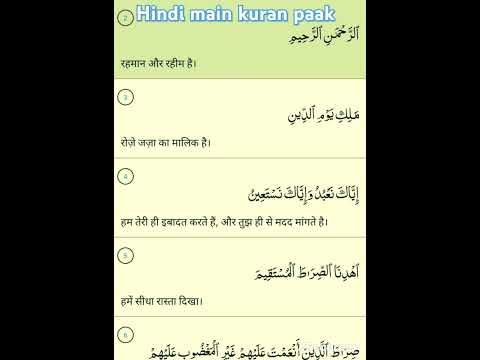 Hindi main kuran paak
2
ٱلرَّحْمَٰنِ ٱلرَّحِيمِ
रहमान और रहीम है।
3
مَٰلِكِ يَوْمِ ٱلدِّينِ
रोज़े जज़ा का मालिक है।
4
إِيَّاكَ نَعْبُدُ وَإِيَّاكَ نَسْتَعِينُ
हम तेरी ही इबादत करते हैं, और तुझ ही से मदद मांगते है।
5
ٱهْدِنَا ٱلصِّرَٰطَ ٱلْمُسْتَقِيمَ
हमें सीधा रास्ता दिखा।
6
صِرَٰطَ ٱلَّذِينَ أَنْعَمْتَ عَلَيْهِمْ غَيْرِ ٱلْمَغْضُوبِ عَلَيْهِمْ